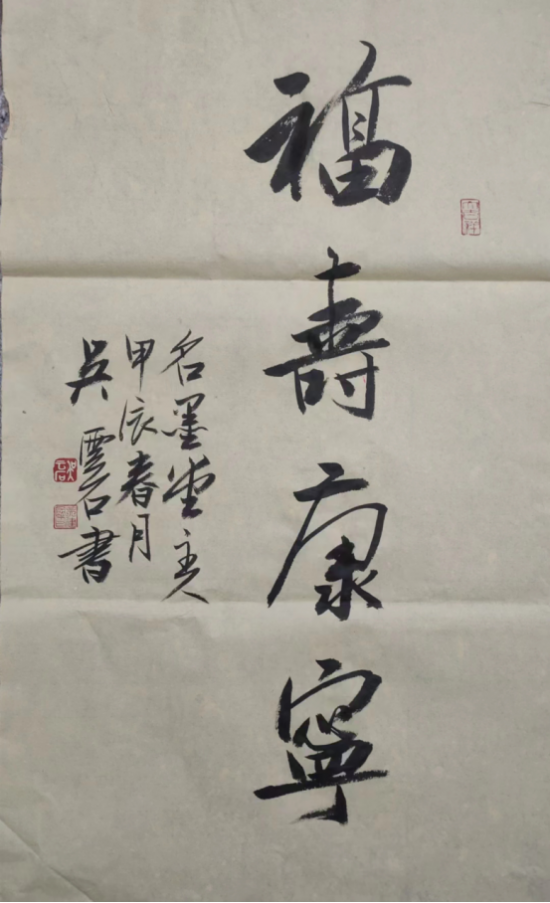 福壽康寧
名墨堂主人
甲辰春月
吳雲石書